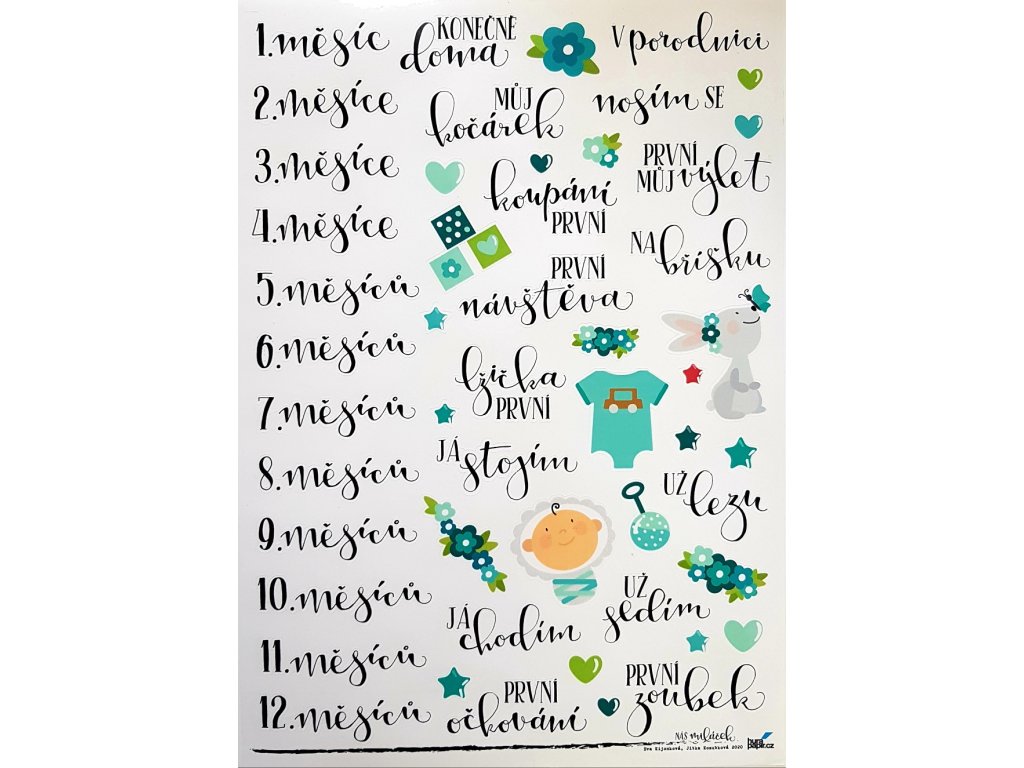 1. měsíc
2. měsíce
3. měsíce
4. měsíce
5. měsíců
6. měsíců
7. měsíců
8. měsíců
9. měsíců
10. měsíců
11. měsíců
12. měsíců
KONEČNĚ
doma
V porodnici
MŮJ
kočárek
nosím SE
koupání
PRVNÍ
PRVNÍ
MŮJ výlet
NA
bříšku
PRVNÍ
návštěva
lžička
PRVNÍ
JÁ stojím
UŽ lezu
JÁ
chodím
UŽ
sedím
PRVNÍ
očkování
PRVNÍ
zoubek
NÁŠ miláček
2020